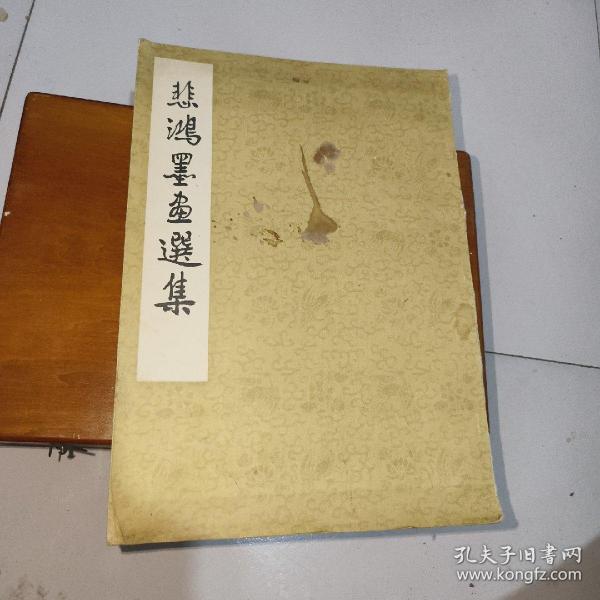 悲鴻墨畫選集
孔夫子旧書网
www.kongfz.com